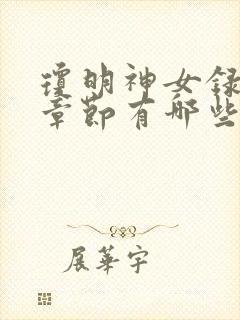 瓊明神女録
章節有哪些
展華宇